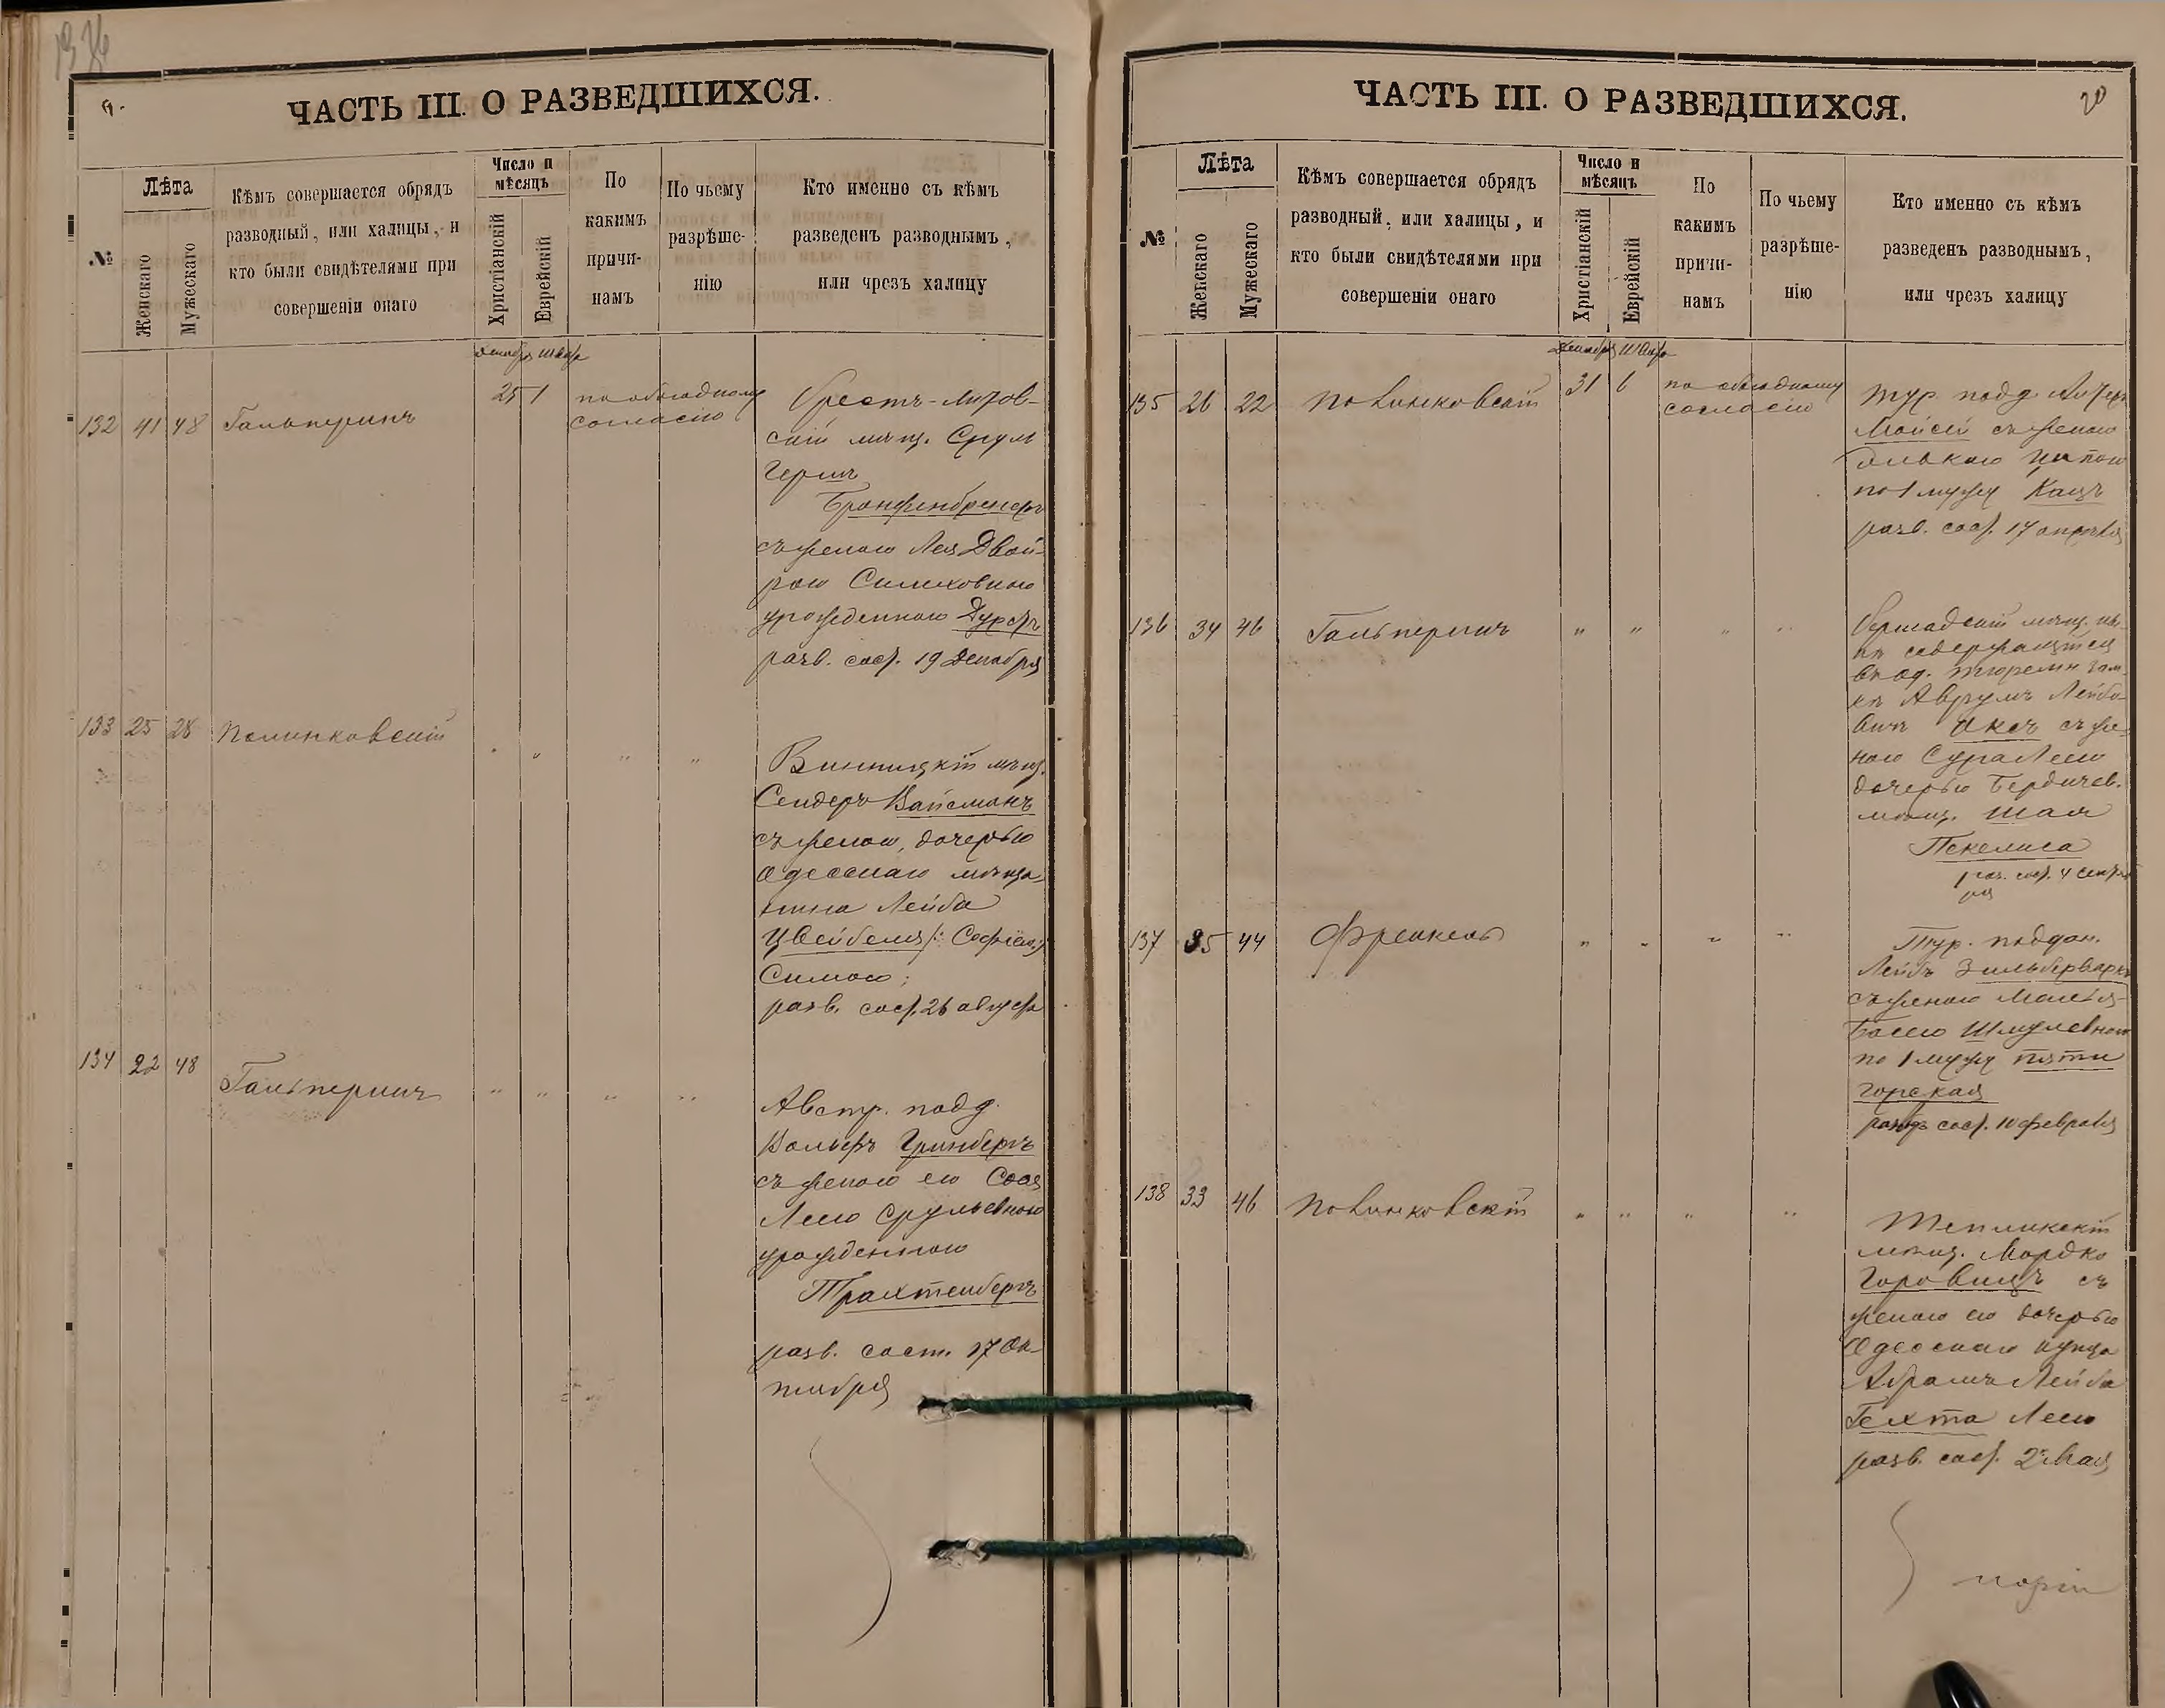 1936
ЧАСТЬ III. О РАЗВЕДШИХСЯ.
№
Лѣта
Женскаго
Мужескаго
Кѣмъ совершается обрядъ
разводный, или халицы, и
кто были свидѣтелями при
совершеніи онаго
Число и
мѣсяцъ
Христіанскій
Еврейскій
По
какимъ
причи-
намъ
По чьему
разрѣше-
нію
Кто именно съ кѣмъ
разведенъ разводнымъ,
или чрезъ халицу
132 41 48 Гальперинъ
25 1
по обоюдному
согласію
Брестъ-Литов-
скій мѣщ. Сруль
Герш
Бронфенбренеръ
съ женою Лея Двой-
рою
урожденною
разв. сост. 19 Декабря
133 25 28 Полинковскій
" " " "
Винницкій мѣщ.
Сендеръ Вайсманъ
съ женою, дочерью
Одесскаго мѣща-
нина Лейба
Цвейбеля /: Софіею :/
Симою;
разв. сост. 26 августа
134 22 48 Гальперинъ
" " " "
Австр. подд.
Вольфъ Гринбергъ
съ женою его
Леею Срулевною
урожденною
Трахтенбергъ
разв. сост. 17 Ок-
тября
ЧАСТЬ III. О РАЗВЕДШИХСЯ.
20
№
Лѣта
Женскаго
Мужескаго
Кѣмъ совершается обрядъ
разводный, или халицы, и
кто были свидѣтелями при
совершеніи онаго
Число и
мѣсяцъ
Христіанскій
Еврейскій
По
какимъ
причи-
намъ
По чьему
разрѣше-
нію
Кто именно съ кѣмъ
разведенъ разводнымъ,
или чрезъ халицу
135 26 22 Полинковскій
31 6
по обоюдному
согласію
Тур. подд.
Мойсей съ женою
по 1 мужу Кацъ
разв. сост. 17 апрѣля
136 34 46 Гальперинъ
" " " "
Бершадскій мѣщ. ны-
нѣ содержащійся
въ од. тюремн. зам-
кѣ Аврумъ Лейбо-
вичъ Аксъ съ же-
ною Сура Леею
дочерью Бердичев.
мѣщ. Шая
Пекелиса
137 35 44 Френкель
" " " "
Тур. поддан.
Лейбъ Зильберваркъ
съ женою Малья-
Басею Шмулевною
по 1 мужу Пяти
горская
разв. сост. 10 февраля
138 33 46 Полинковскій
" " " "
Тепликскій
мѣщ. Мордко
Горовицъ съ
женою его дочерью
Одесскаго купца
Абрамъ Лейба
Гехта Леею
разв. сост. 2 Мая